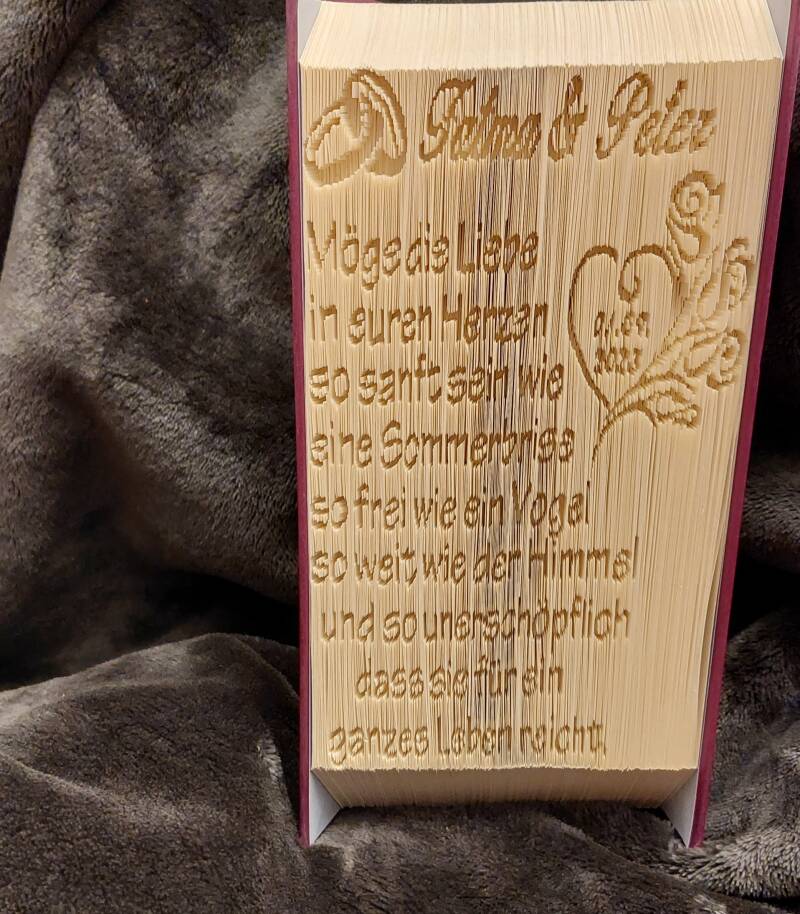 Fatma & Peter
Möge die Liebe
in euren Herzen
so sanft sein wie
eine Sommerbrise
so frei wie ein Vogel
so weit wie der Himmel
und so unerschöpflich
dass sie für ein
ganzes Leben reicht.
2023